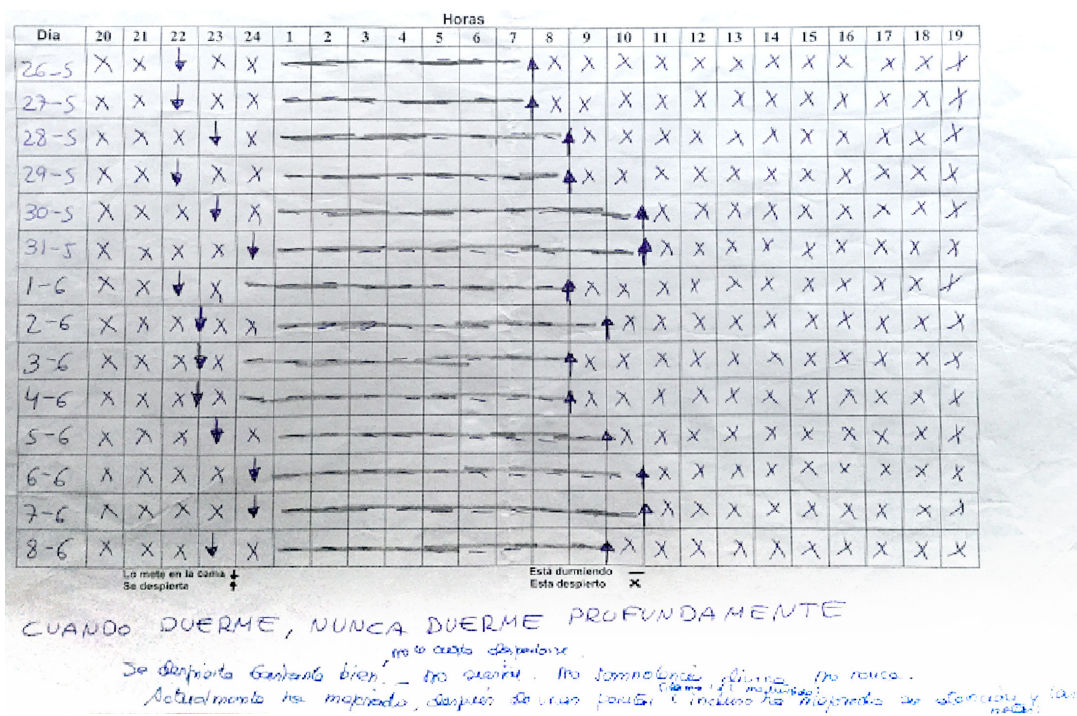 Horas
Dia 20 21 22 23 24 1 2 3 4 5 6 7 8 9 10 11 12 13 14 15 16 17 18 19
26-5 X X ↓ X X — ↑ X X X X X X X X X X X X
27-5 X X ↓ X X — ↑ X X X X X X X X X X X X
28-5 X X X ↓ X — ↑ X X X X X X X X X X X
29-5 X X ↓ X X — ↑ X X X X X X X X X X X
30-5 X X X ↓ X — ↑ X X X X X X X X X
31-5 X X X X ↓ — ↑ X X X X X X X X X
1-6 X X ↓ X — ↑ X X X X X X X X X X X
2-6 X X X ↓ X X — ↑ X X X X X X X X X X
3-6 X X X ↓ X — ↑ X X X X X X X X X X X
4-6 X X X ↓ X — ↑ X X X X X X X X X X X
5-6 X X X ↓ X — ↑ X X X X X X X X X X
6-6 X X X X ↓ — ↑ X X X X X X X X X
7-6 X X X X ↓ — ↑ X X X X X X X X X
8-6 X X X ↓ X — ↑ X X X X X X X X X X
Lo mete en la cama ↓ Está durmiendo —
Se despierta ↑ Esta despierto X
CUANDO DUERME, NUNCA DUERME PROFUNDAMENTE
no le cuesta despertarse
Se despierta bastante bien, no no somnolencia diurna no ronca.
Actualmente ha mejorado, después de unas incluso ha mejorado su atención y las
notas.